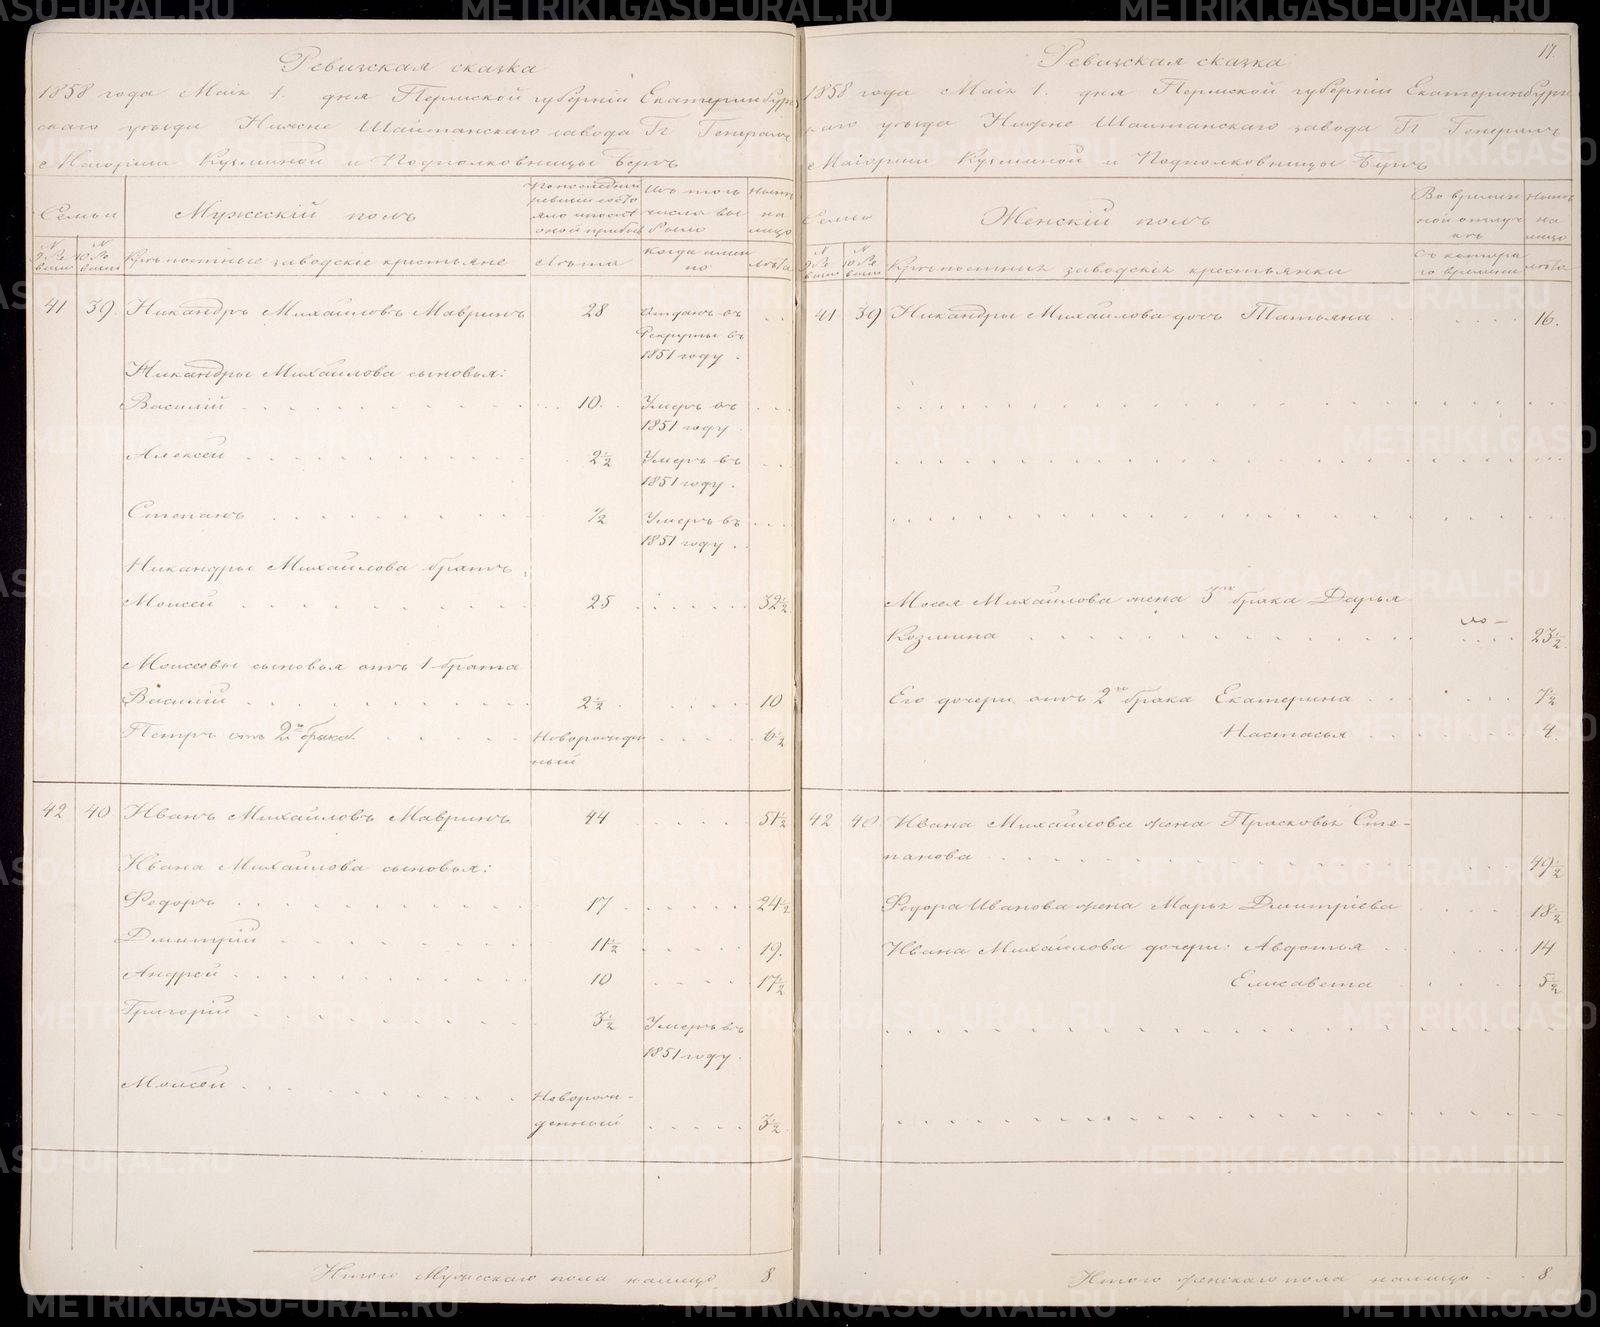 Ревизская сказка
1858 года Маія 1. дня Пермской губерніи Екатеринбург
скаго уезда Нижне Шайтанскаго завода Гг Генералъ
Маіорши Кузминой и Подполковницы Бергъ
Семьи
Мужескій полъ
По последней ревизіи состояло и после оной прибыло
Изъ того числа выбыло
Ныне на лицо
№ 9 Ревизіи
№ 10 Ревизіи
Крепостные заводскіе крестьяне
Лета
Когда именно
Лета
41 39. Никандръ Михайловъ Мавринъ 28 Отданъ въ
Рекруты въ
1851 году.
Никандры Михайлова сыновья:
Василій 10. Умеръ въ
1851 году.
Алексей 2½ Умеръ въ
1851 году.
Степанъ ½ Умеръ въ
1851 году.
Никандры Михайлова братъ
Моисей 25 32½
Моисеевы сыновья отъ 1 брака
Василій 2½ 10
Петръ отъ 2го брака. Новорожден 6½
ный
42 40 Иванъ Михайловъ Мавринъ 44 51½
Ивана Михайлова сыновья:
Федоръ 17 24½
Дмитрій 11½ 19.
Андрей 10 17½
Григорій 3½ Умеръ въ
1851 году.
Моисей Новорож-
денный 3½
Итого Мужескаго пола налицо 8
17.
Ревизская сказка
1858 года Маія 1. дня Пермской губерніи Екатеринбург
скаго уезда Нижне Шайтанскаго завода Гг Генералъ
Маіорши Кузминой и Подполковницы Бергъ
Семьи
Женскій полъ
Во времен
ной отлуч
ке
Ныне
на
лицо
№ 9 Ревизіи
№ 10 Ревизіи
Крепостныя заводскія крестьянки
Съ котора
го времени
лета
41 39 Никандры Михайлова дочь Татьяна 16.
Мосея Михайлова жена 3го брака Дарья
Козмина 23½
Его дочери отъ 2го брака Екатерина 7½
Настасья 4.
42 40 Ивана Михайлова жена Прасковья Сте-
панова 49½
Федора Иванова жена Марья Дмитріева 18½
Ивана Михайлова дочери: Авдотья 14
Елисавета 5½
Итого женскаго пола налицо 8
METRIKI.GASO-URAL.RU